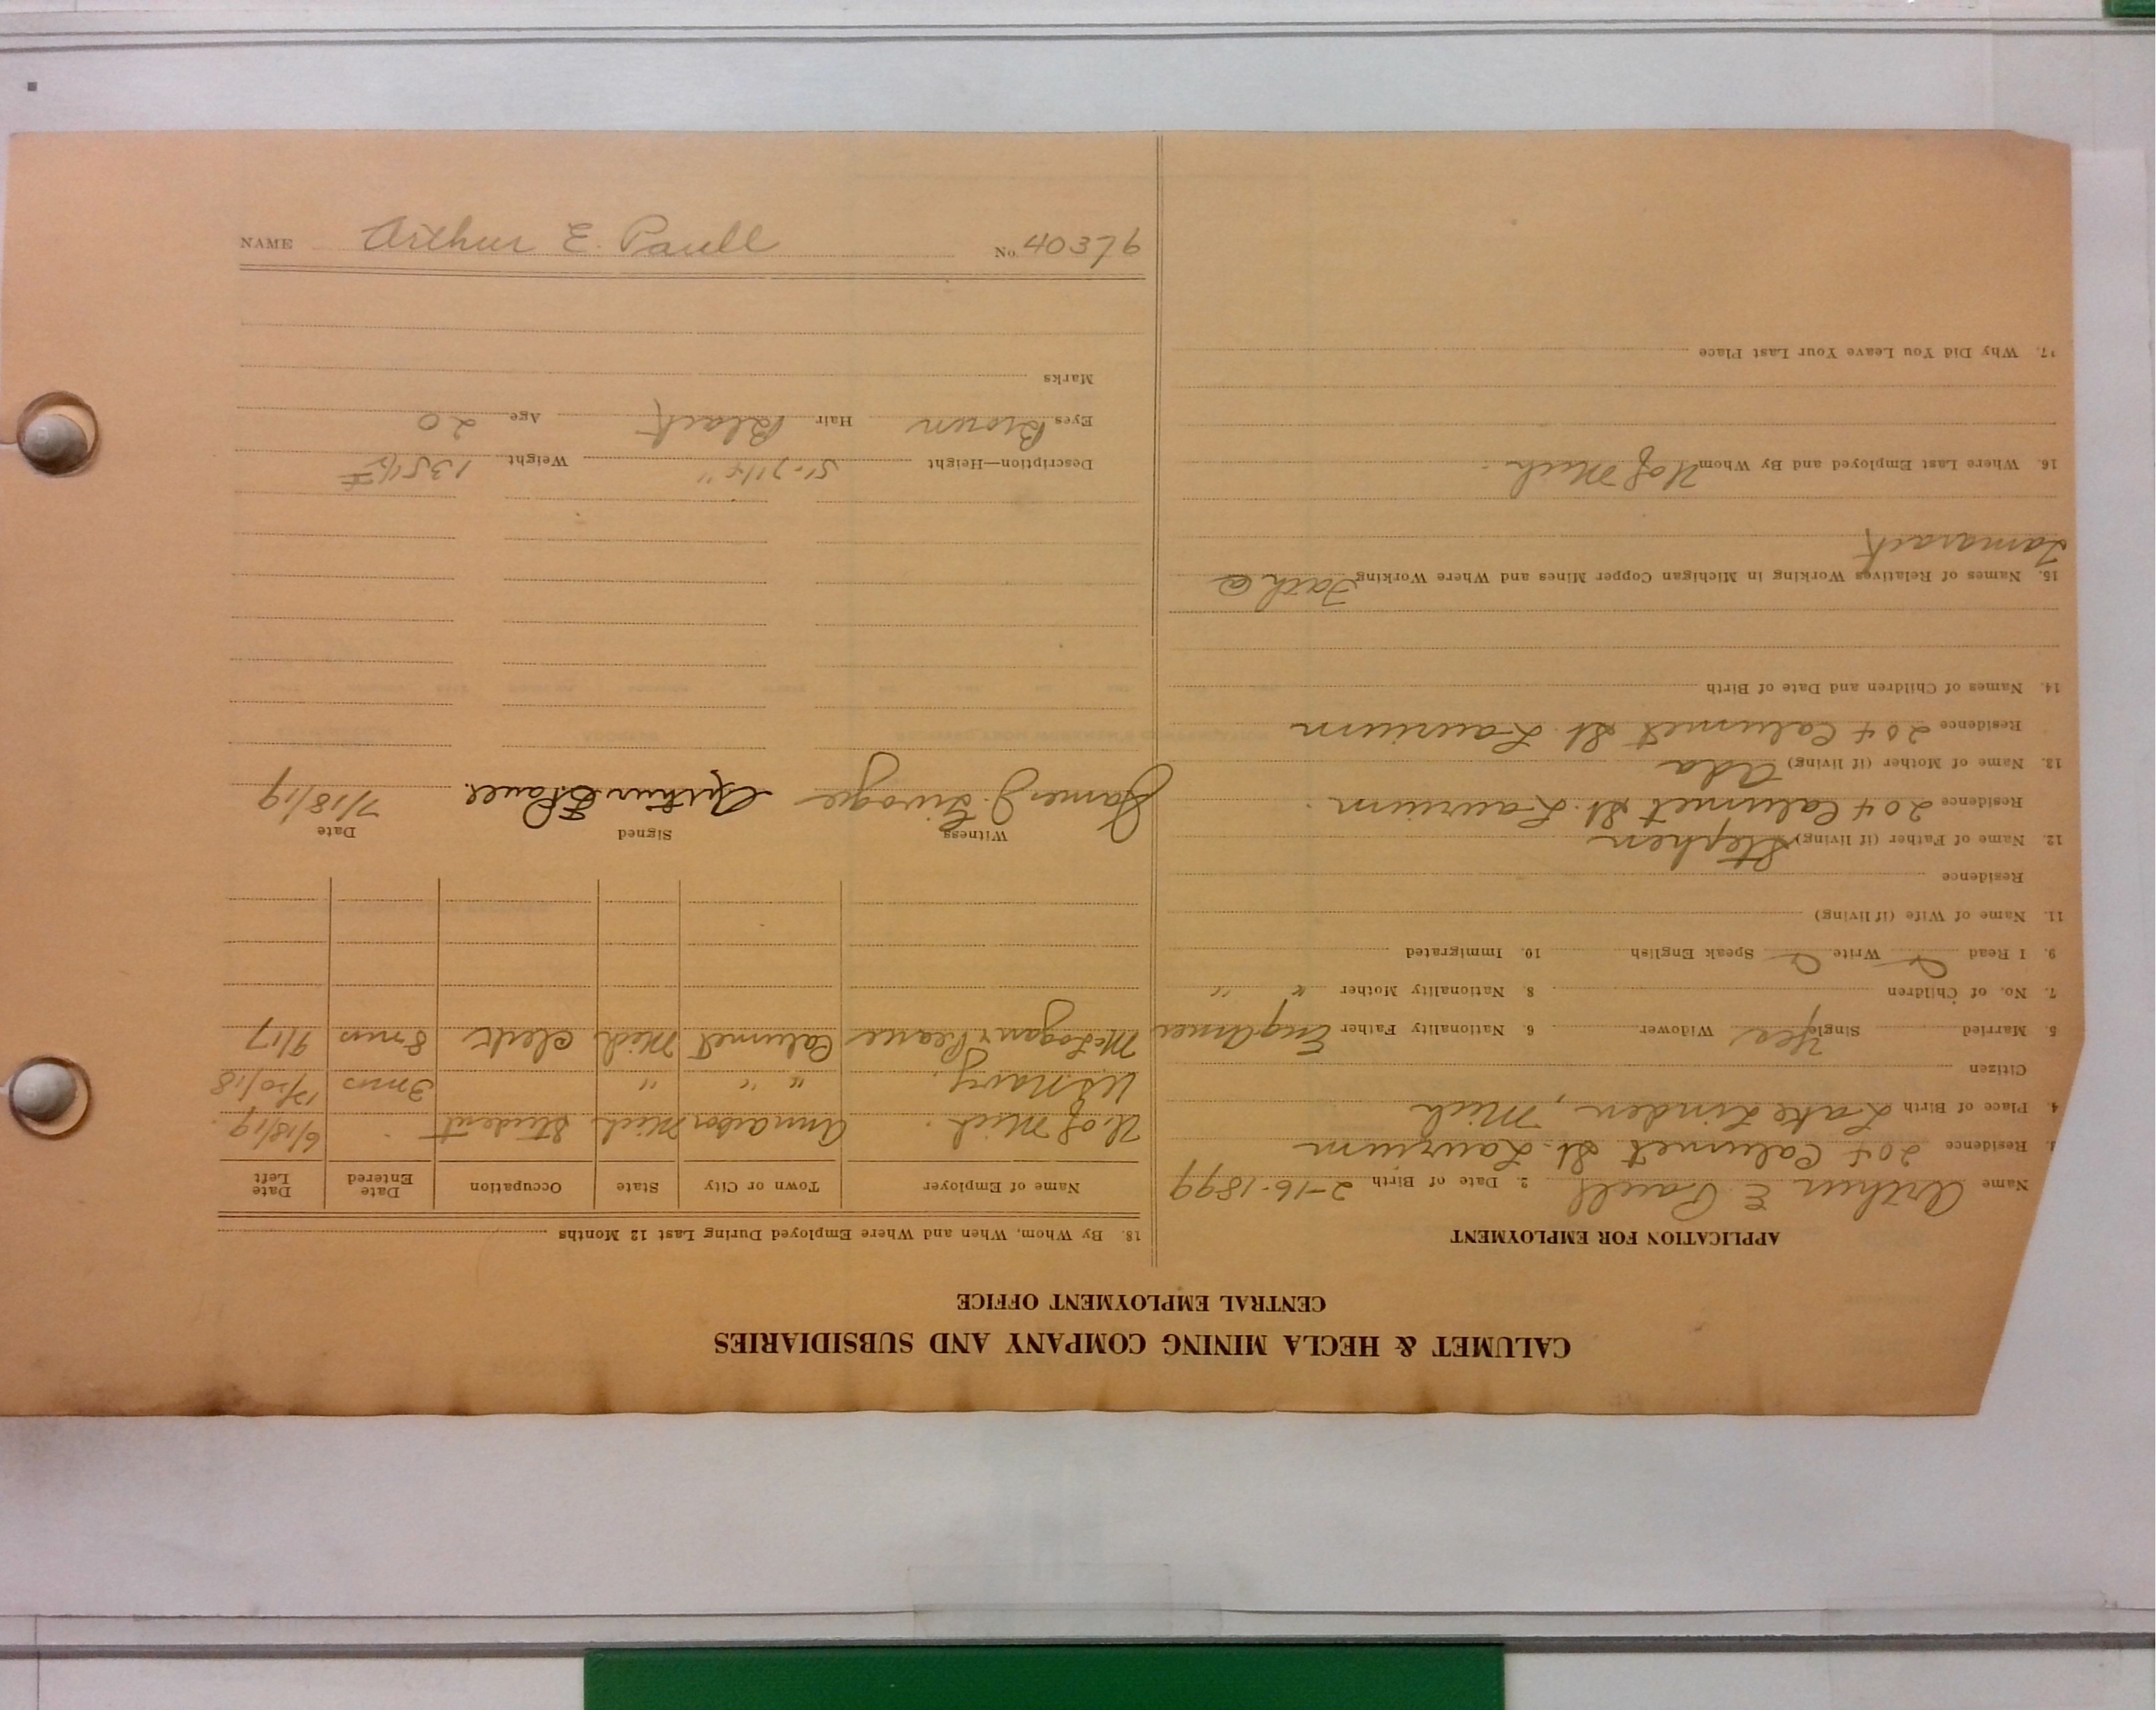 CALUMET & HECLA MINING COMPANY AND SUBSIDIARIES
CENTRAL EMPLOYMENT OFFICE
APPLICATION FOR EMPLOYMENT
Name Arthur E Paull 2. Date of Birth 2-16-1899
Residence 204 Calumet St. Laurium
4. Place of Birth Lake Linden, Mich
Citizen
5. Married Single Yes Widower 6. Nationality Father Eng Amer
7. No. of Children 8. Nationality Mother " "
9. I Read Write Speak English 10. Immigrated
11. Name of Wife (if living)
Residence
12. Name of Father (if living) Stephen
Residence 204 Calumet St. Laurium.
13. Name of Mother (if living) Ada
Residence 204 Calumet St. Laurium
14. Names of Children and Date of Birth
15. Names of Relatives Working in Michigan Copper Mines and Where Working Fath @
Tamarack
16. Where Last Employed and By Whom U of Mich.
17. Why Did You Leave Your Last Place
18. By Whom, When and Where Employed During Last 12 Months
Name of Employer Town or City State Occupation Date Entered Date Left
U of Mich. Ann arbor Mich Student 6/18/19.
U.S Navy. " " " 3 mos 12/20/18
McLogan & Pearce Calumet Mich Clerk 8 mos 9/17
Witness Signed Date
James J. Arthur E Paull. 7/18/19
Description—Height 5'-7 1/4" Weight 135 1/2 #
Eyes Brown Hair Black Age 20
Marks
NAME Arthur E. Paull No. 40376